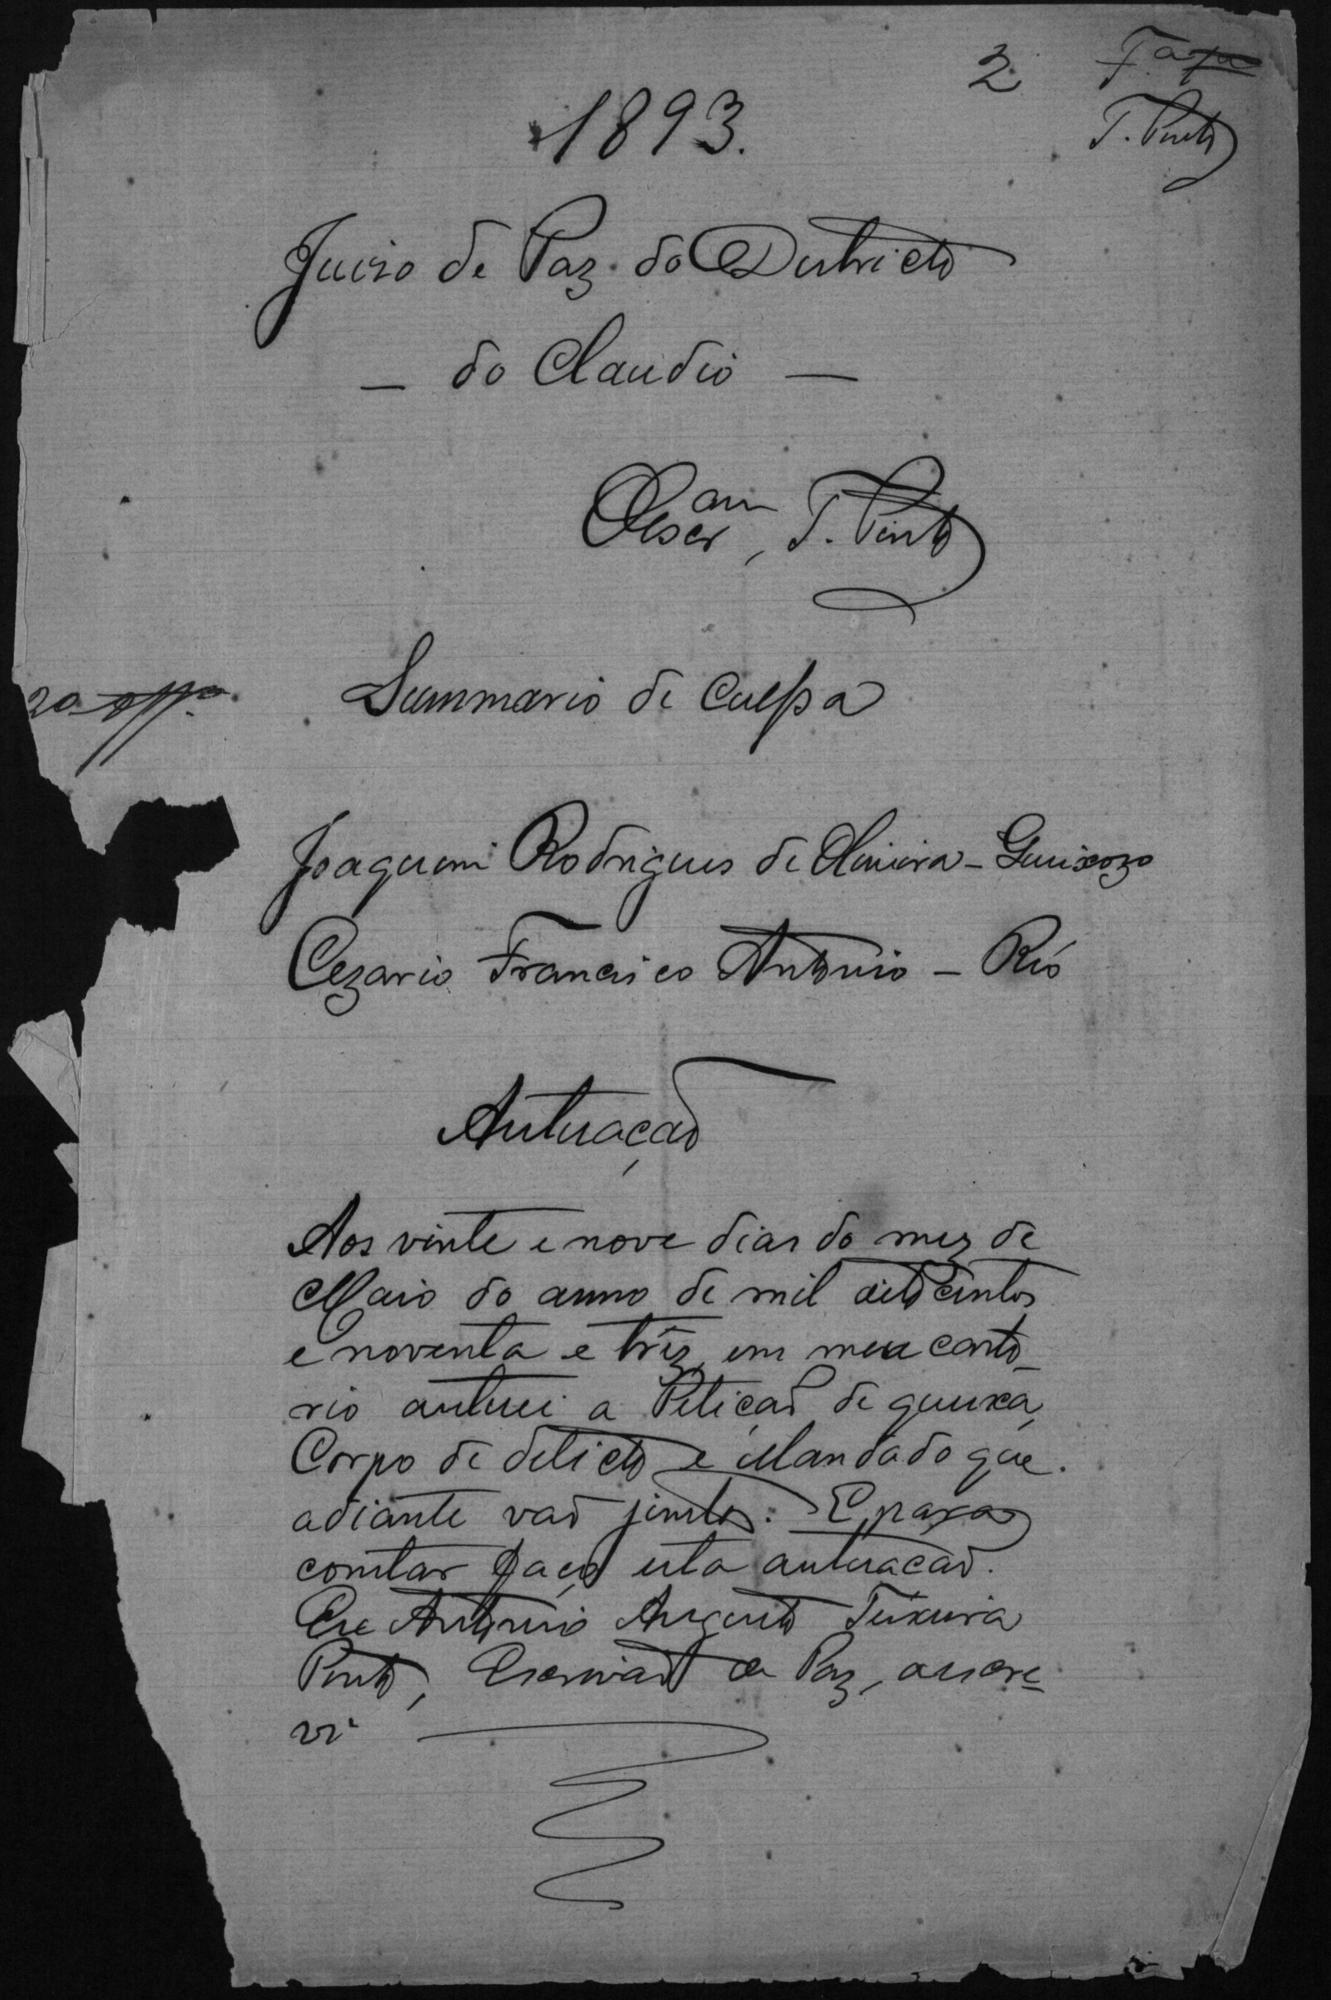 2
T. Pinto
1893.
Juizo de Paz do Districto
— do Claudio —
O Escr.am, T. Pinto
Summario de Culpa
Joaquim Rodrigues de Oliveira – Queixozo
Cezario Francisco Antonio – Réo
Autuação
Aos vinte e nove dias do mez de
Maio do anno de mil oitocentos
e noventa e trez, em meu carto-
rio autuei a Petição de queixa,
Corpo de delicto e Mandado que
adiante vaõ juntos. E para
constar faço esta autuacaõ.
Eu Antonio Augusto Teixeira
Pinto, Escrivaõ de Paz, o escre-
vi